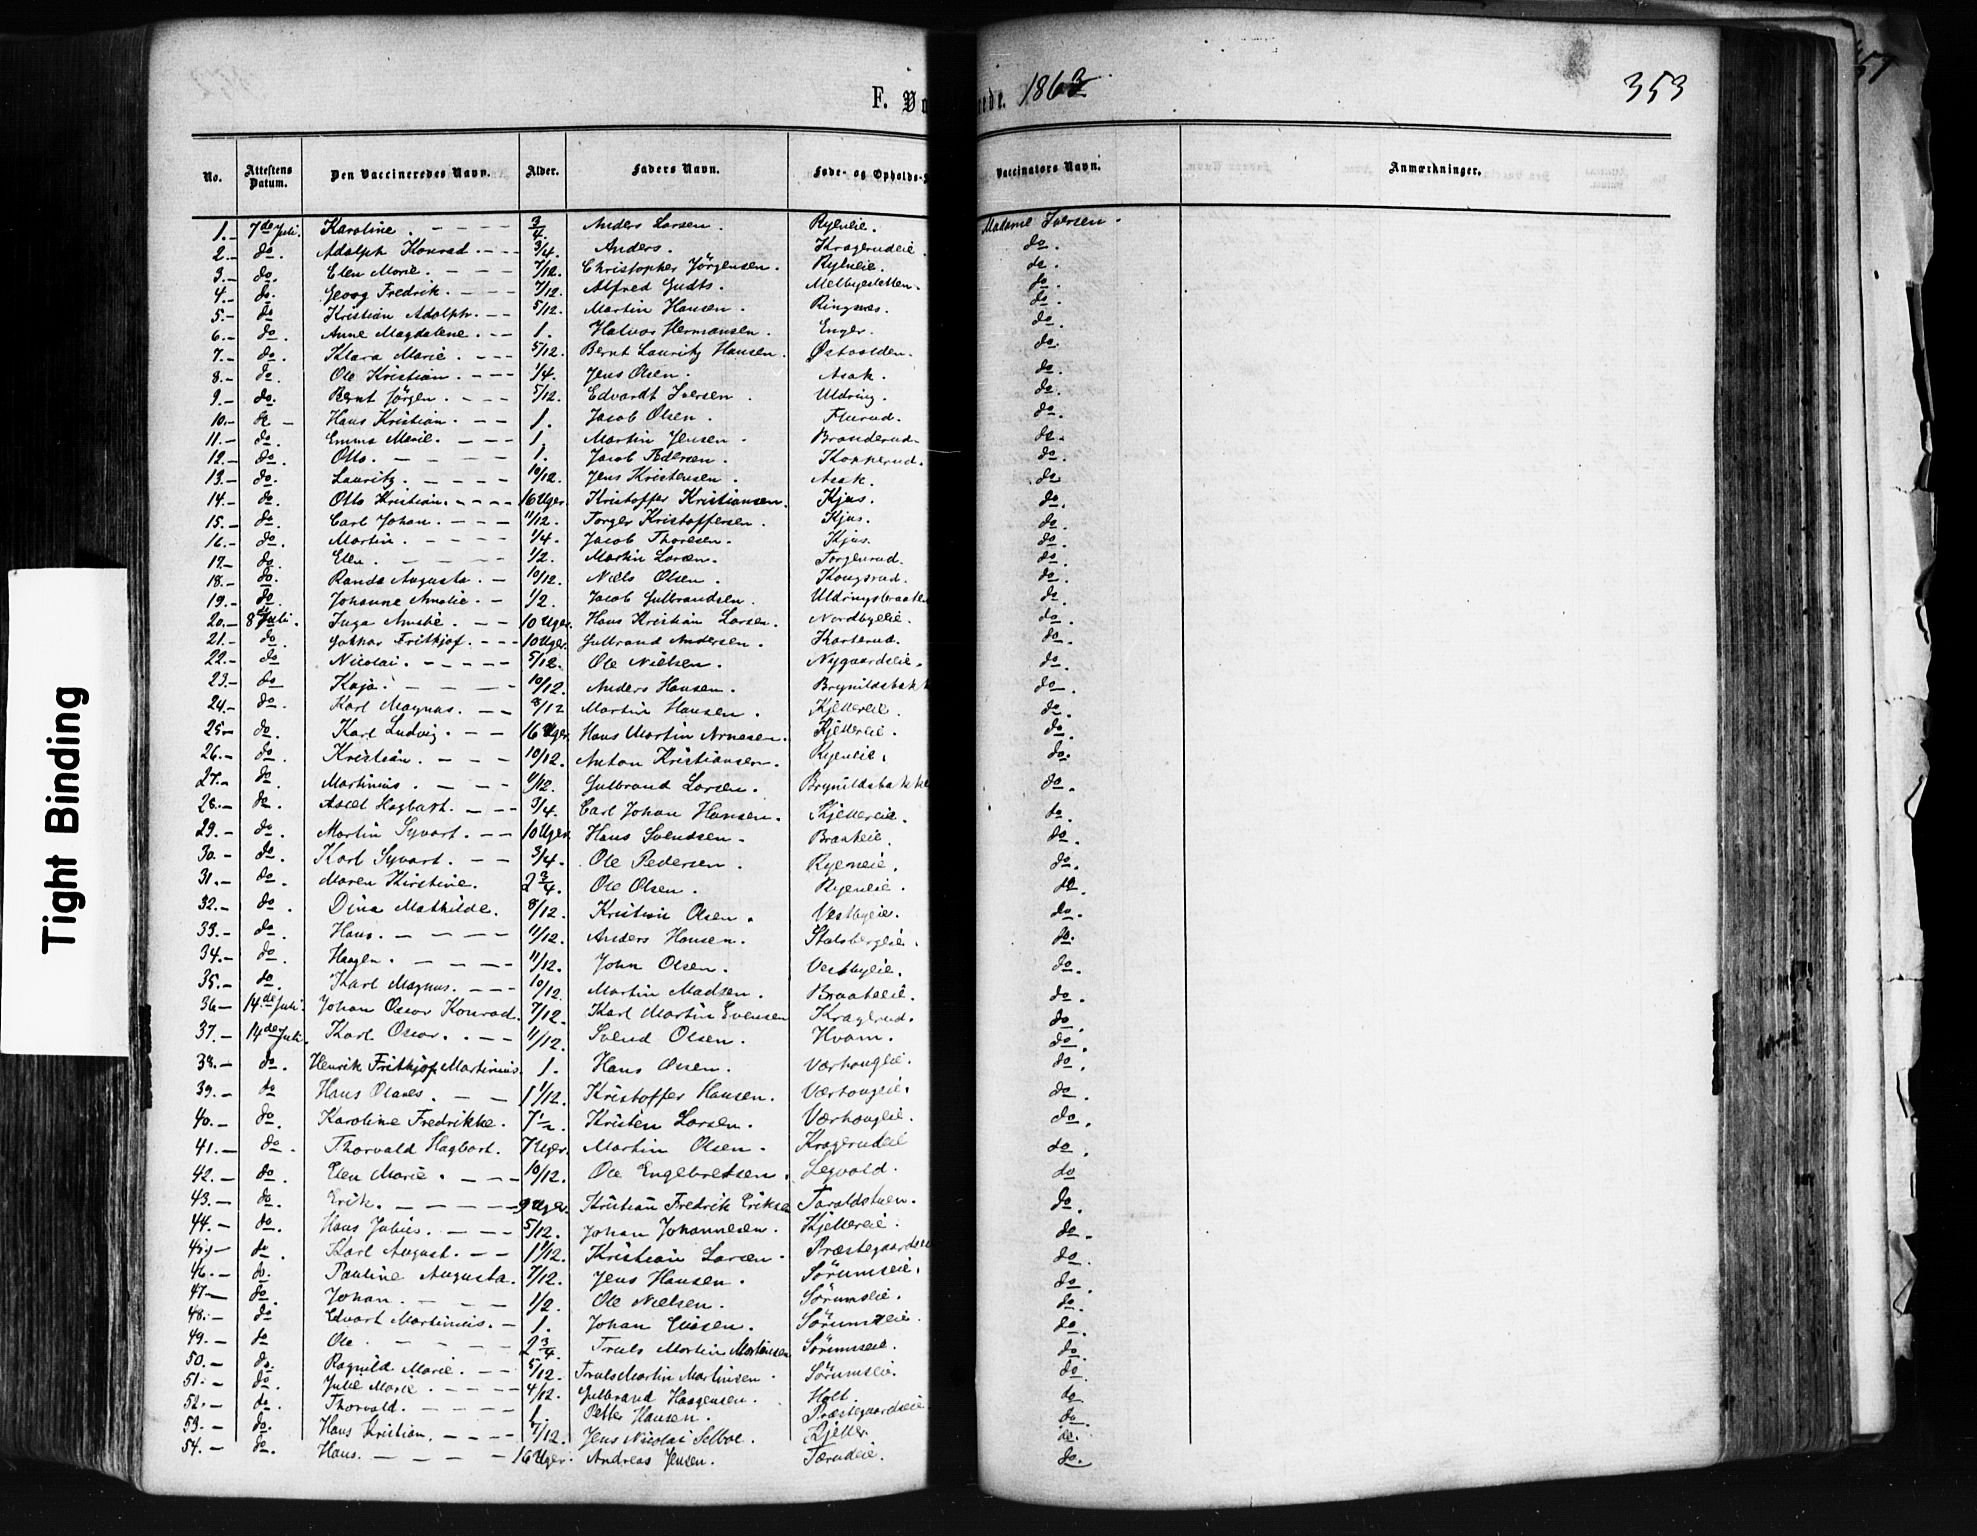 353
F. Va
ede. 1863
No. Attestens Datum. Den Vaccineredes Navn. Alder. Faders Navn. Føde- og Opholds- Vaccinators Navn. Anmærkninger.
1.- 7de Juli. Karoline. 3/4 Anders Larsen. Ryeneie. Madame Iversen.
2.- do. Adolph Konrad. 3/4. Anders. Krageruddeie. do.
3.- do. Elen Marie. 7/12. Christopher Jørgensen. Ryeneie. do.
4.- do. Georg Fredrik. 7/12. Alfred Melbyesletten. do.
5.- do Kristian Adolph. 5/12. Martin Hansen. Ringnæs. do.
6.- do. Anne Magdalene. 1. Halvor Hermansen. Enger. do.
7.- do. Klara Marie. 5/12. Bernt Lauritz Hansen. Østvolden. do.
8.- do. Ole Kristian. 1/4. Jens Olsen. Asak. do.
9.- do. Bernt Jørgen. 5/12. Edvardt Iversen. Uldring. do.
10.- do - Hans Kristian. 1. Jacob Olsen. Flurud. do.
11.- do. Emma Marie. 1. Martin Jensen. Branderud. do.
12.- do. Otto. 1. Jacob Pedersen. Kopperud. do.
13.- do. Lauritz. 10/12. Jens Kristensen. Asak. do
14.- do. Otto Kristian. 16 Uger. Kristoffer Kristiansen. Kjus. do.
15.- do. Carl Johan. 11/12. Torger Kristoffersen. Kjus. do.
16.- do. Martin. 1/4. Jacob Thoresen. Kjus. do.
17.- do. Elen. 1/2. Martin Larsen. Torgerud. do.
18.- do. Randa Augusta. 10/12. Niels Olsen. Kongsrud. do.
19.- do. Johanne Amalie. 1/2. Jacob Gulbrandsen. Uldringsbraaten do.
20.- 8de Juli. Inga Amalie. 10 Uger. Hans Kristian Larsen. Nordbyeie. do.
21.- do. Frithjof. 10 Uger. Gulbrand Andersen. Karterud. do.
22.- do Nicolai. 5/12. Ole Nielsen. Nygaardseie. do.
23.- do Kaja. 10/12. Anders Hansen. Brynildsbakk do.
24.- do. Karl Magnus. 8/12 Martin Hansen. Kjellereie. do.
25.- do. Karl Ludvig. 16 Uger. Hans Martin Arnesen. Kjellereie. do.
26.- do. Kristian. 10/12. Anton Kristiansen. Ryeneie. do.
27.- do Martinius. 11/12. Gulbrand Larsen. Brynildsbakke do.
28.- do. Axel Hagbart. 3/4. Carl Johan Hansen. Kjellereie. do.
29.- do. Martin Syvart. 10 Uger. Hans Svendsen. Braateie. do.
30.- do. Karl Syvart. 3/4. Ole Pedersen. Ryeneie. do.
31.- do. Maren Kirstine. 2 3/4. Ole Olsen. Ryeneie. do.
32.- do. Dina Mathilde. 8/12. Kristian Olsen. Vestbyeie. do.
33.- do. Hans. 11/12. Anders Hansen. Stalsbergeie. do.
34.- do. Haagen. 11/12. John Olsen. Vestbyeie. do.
35.- do. Karl Magnus. 10/12. Martin Madsen. Braateeie. do.
36.- 14de Juli. Johan Oscar Konrad. 7/12. Karl Martin Evensen Kragerud. do.
37.- 14de Juli. Karl Oscar. 11/12. Svend Olsen. Hvam. do.
38.- do. Henrik Frithjof Martinius. 1. Hans Olsen. Værhougeie. do.
39.- do Hans Olaves. 1 1/12. Kristoffer Hansen. Værhougeie. do.
40.- do. Karoline Fredrikke. 7 1/2. Kristen Larsen. Værhougeie. do.
41.- do. Thorvald Hagbart. 7 Uger. Martin Olsen. Kragerudeie do.
42.- do. Elen Marie. 10/12. Ole Engebretsen. Legvold. do
43.- do. Erik. 9 Uger. Kristian Fredrik Erikse Taraldstuen. do.
44.- do. Hans Julius. 5/12. Johan Johannesen. Kjellereie. do.
45.- do. Karl August. 1 1/12. Kristian Larsen. Præstegaardsei do.
46.- do. Pauline Augusta. 7/12. Jens Hansen. Sørumseie. do.
47.- do. Johan. 1/2. Ole Nielsen. Sørumseie. do.
48.- do Edvart Martinius. 1. Johan Sørumseie. do.
49.- do Ole 2 3/4. Truls Martin Martinsen Sørumseie. do.
50.- do. Ragnild Marie. 5/12. Truls Martin Martinsen. Sørumseie. do.
51.- do. Julie Marie. 4/12. Gulbrand Haagensen. Holt. do
52.- do. Thorvald. 1. Petter Hansen. Præstegaardseie do.
53.- do. Hans Kristian. 7/12. Jens Nicolai Selboe. Kjeller. do.
54.- do. Hans. 16 Uger. Andreas Jensen. Tærudeie. do.
Tight Binding